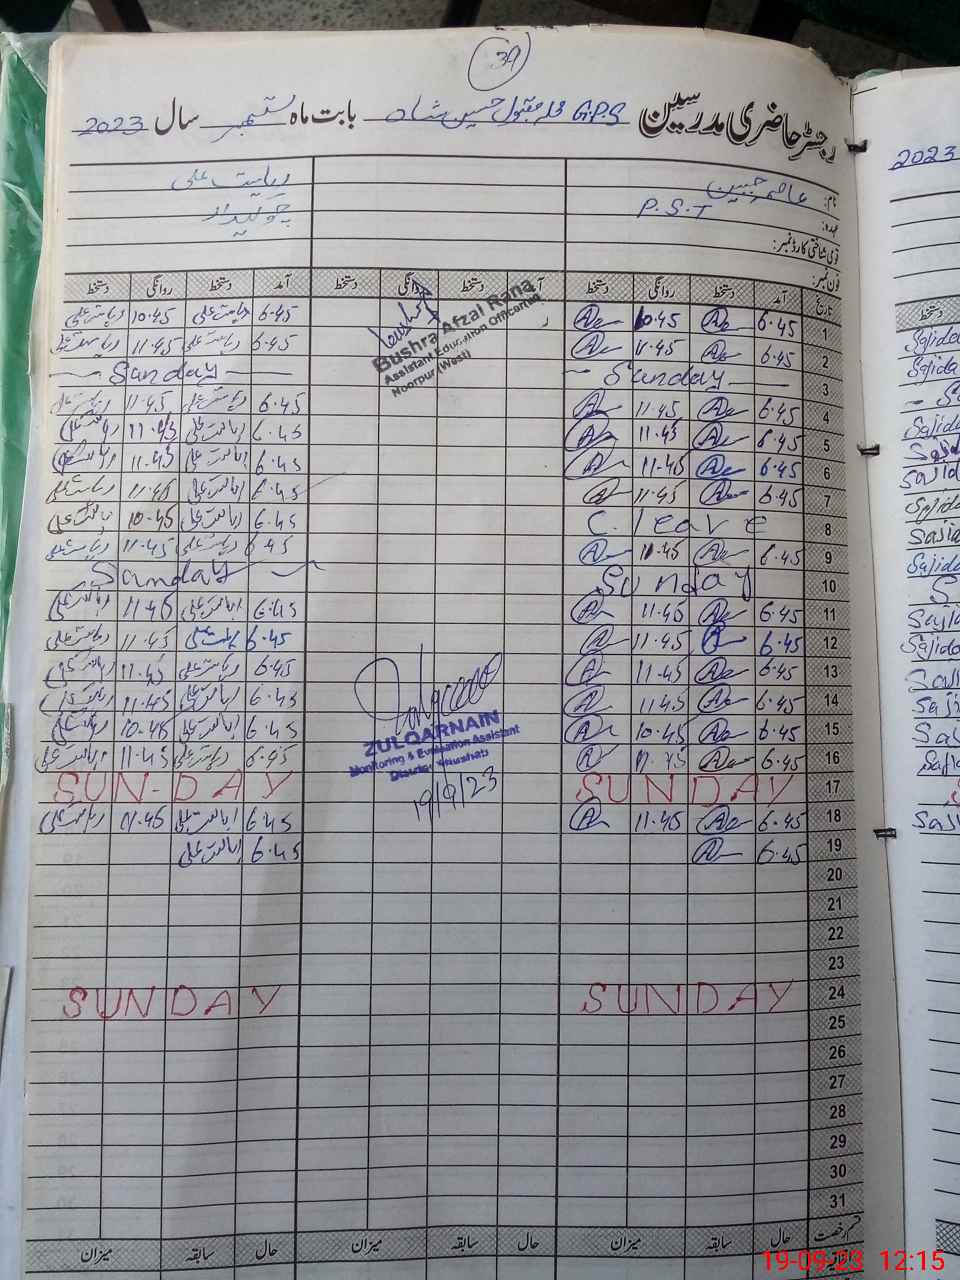 39
رجسٹر حاضری مدرسین G.P.S محلہ مقبول حسین شاہ بابت ماہ ستمبر سال 2023
نام: عاصمہ جبین ریاست علی
عہدہ: P.S.T چوکیدار
قومی شناختی کارڈ نمبر:
فون نمبر:
تاریخ آمد دستخط روانگی دستخط دستخط روانگی دستخط آمد دستخط روانگی دستخط
Bushra Afzal Rana
Assistant Education Officer
Noorpur (West)
1 6.45 10.45 6.45 ریاست علی 10.45 ریاست علی
2 6.45 11.45 6.45 ریاست علی 11.45 ریاست علی
3 Sunday Sunday
4 6.45 11.45 6.45 ریاست علی 11.45 ریاست علی
5 6.45 11.45 6.45 ریاست علی 11.45 ریاست علی
6 6.45 11.45 6.45 ریاست علی 11.45 ریاست علی
7 6.45 11.45 6.45 ریاست علی 11.45 ریاست علی
8 C. leave 6.45 ریاست علی 10.45 ریاست علی
9 6.45 11.45 6.45 ریاست علی 11.45 ریاست علی
10 Sunday Sunday
11 6.45 11.45 6.45 ریاست علی 11.45 ریاست علی
12 6.45 11.45 6.45 ریاست علی 11.45 ریاست علی
13 6.45 11.45 6.45 ریاست علی 11.45 ریاست علی
14 6.45 11.45 6.45 ریاست علی 11.45 ریاست علی
15 6.45 10.45 6.45 ریاست علی 10.45 ریاست علی
16 6.45 11.45 6.45 ریاست علی 11.45 ریاست علی
ZULQARNAIN
Monitoring & Evaluation Assistant
District Khushab
19/9/23
17 SUNDAY SUN-DAY
18 6.45 11.45 6.45 ریاست علی 11.45 ریاست علی
19 6.45 6.45 ریاست علی
20
21
22
23
24 SUNDAY SUNDAY
25
26
27
28
29
30
31
قسم رخصت حال سابقہ میزان حال سابقہ میزان حال سابقہ میزان
2023
دستخط
Sajida
Sajida
Sajida
Sajida
Sajida
Sajida
19-09-23 12:15